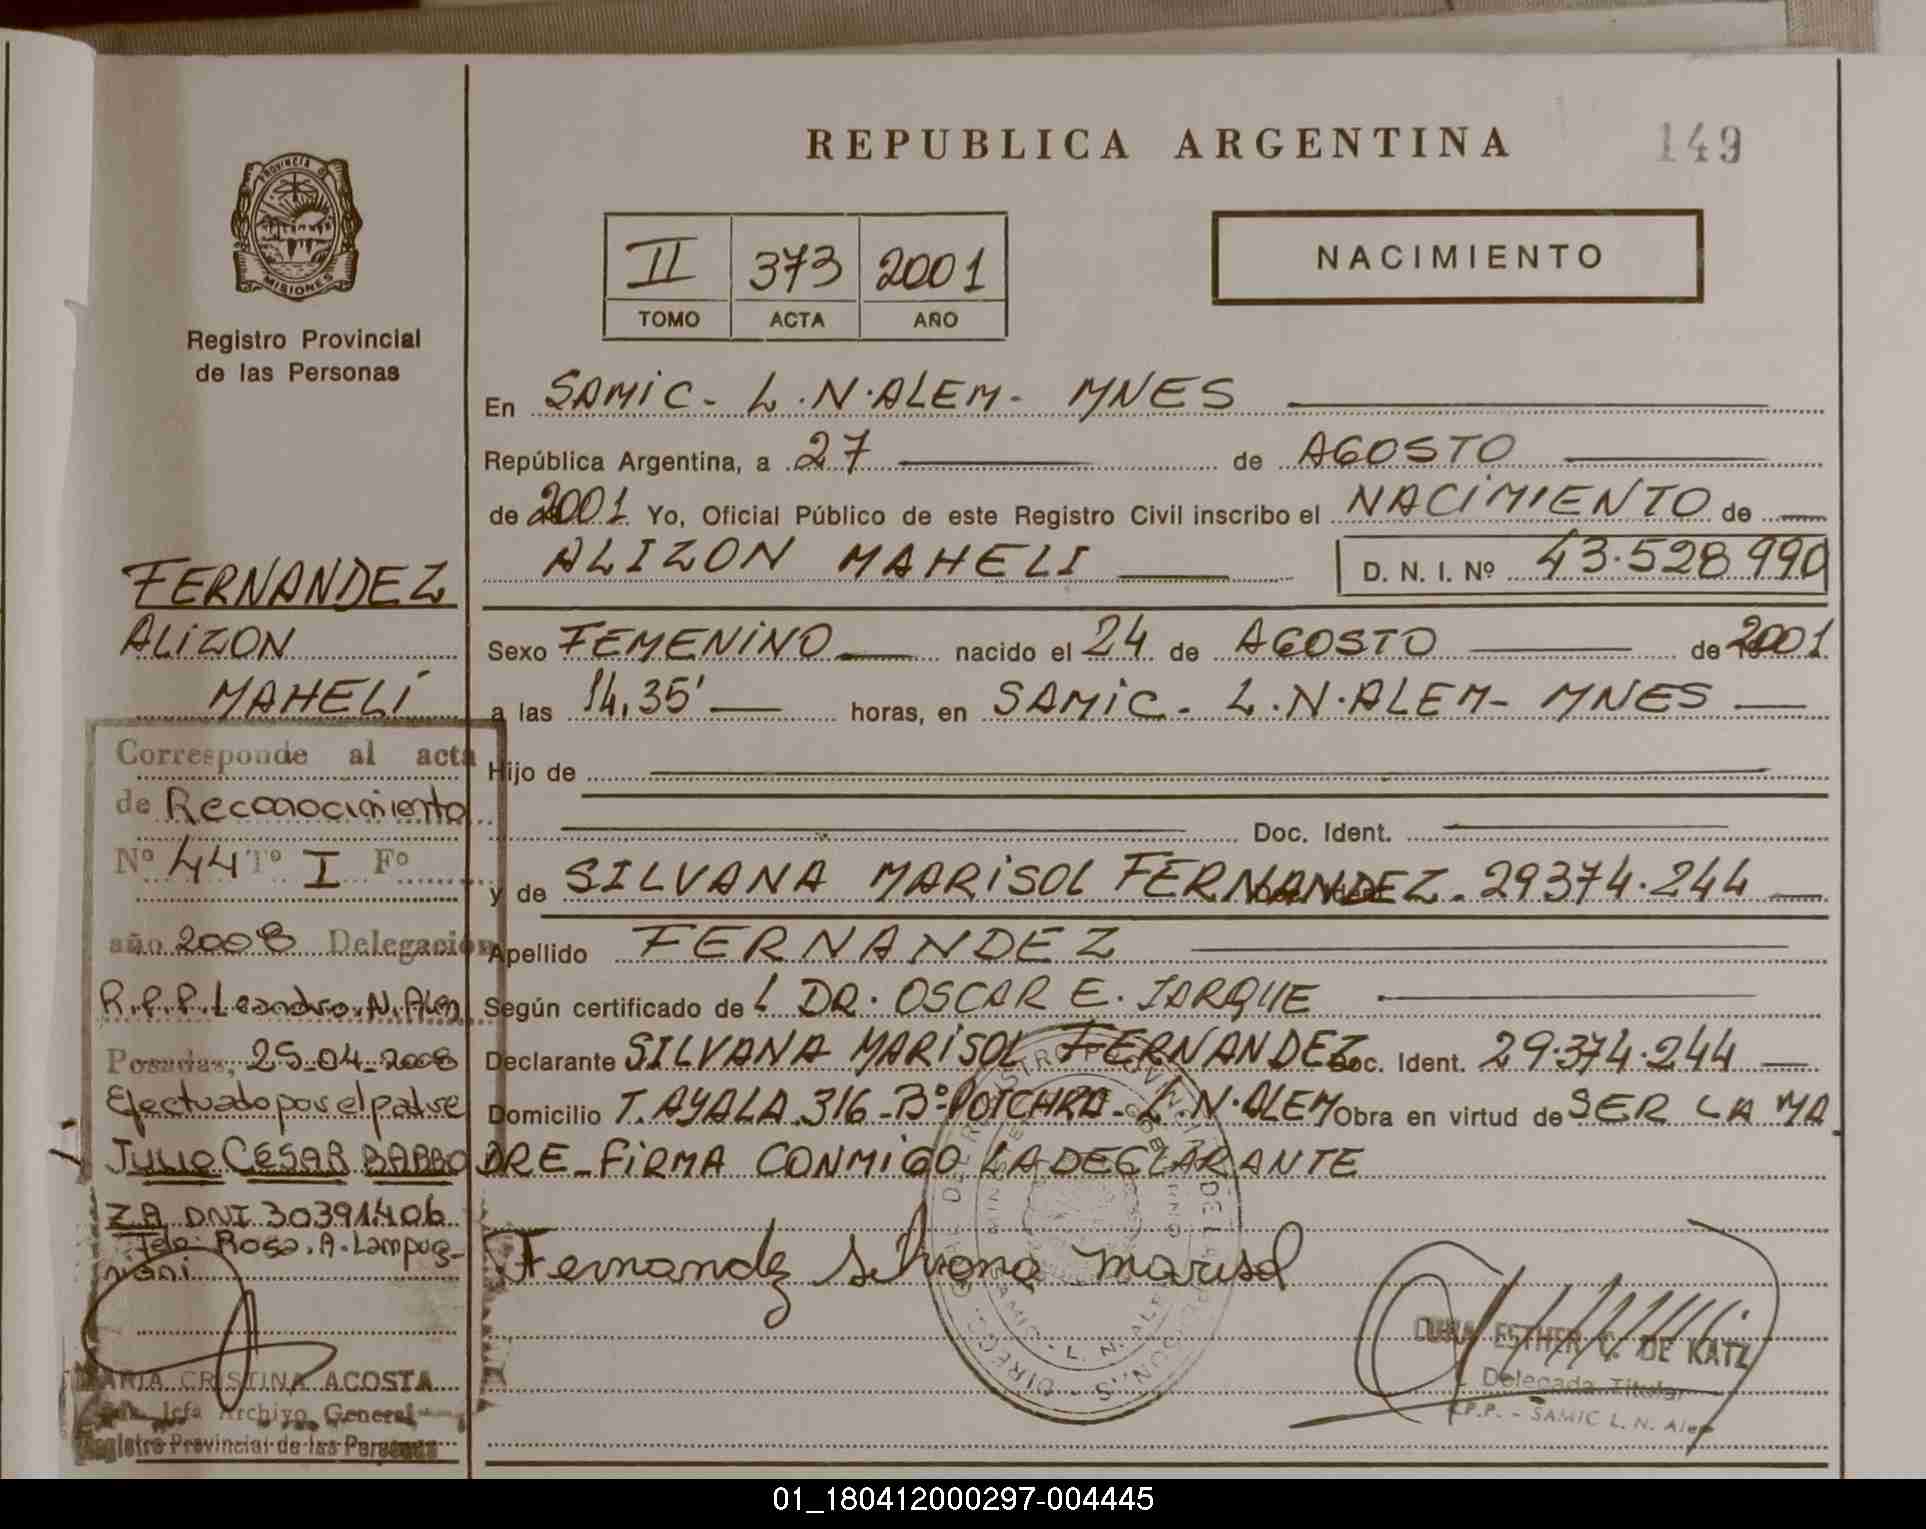 REPUBLICA ARGENTINA
149
PROVINCIA DE
MISIONES
Registro Provincial
de las Personas
II 373 2001
TOMO ACTA AÑO
NACIMIENTO
En SAMIC - L.N.ALEM - MNES
República Argentina, a 27 de AGOSTO
de 2001 Yo, Oficial Público de este Registro Civil inscribo el NACIMIENTO de
ALIZON MAHELI D. N. I. Nº 43.528.990
Sexo FEMENINO nacido el 24 de AGOSTO de 2001
a las 14,35' horas, en SAMIC - L.N.ALEM - MNES
Hijo de
Doc. Ident.
y de SILVANA MARISOL FERNANDEZ. 29374.244
Apellido FERNANDEZ
Según certificado de L DR. OSCAR E. JARQUE
Declarante SILVANA MARISOL FERNANDEZ Doc. Ident. 29.374.244
Domicilio T. AYALA 316 - Bº L.N.ALEM Obra en virtud de SER LA MA
DRE - FIRMA CONMIGO LA DECLARANTE
Fernandez Silvana Marisol
ESTHER C. DE KATZ
Delegada Titular
R.P.P. - SAMIC L. N. Alem
FERNANDEZ
ALIZON
MAHELI
Corresponde al acta
de Reconocimiento
Nº 44 Tº I Fº
año 2008 Delegación
R.P.P. Leandro N. Alem
Posadas, 25-04-2008
Efectuado por el padre
JULIO CÉSAR BARBO
ZA DNI 30391406
Fdo: Rosa A. Lampug-
nani
MARIA CRISTINA ACOSTA
Jefa Archivo General
Registro Provincial de las Personas
01_180412000297-004445